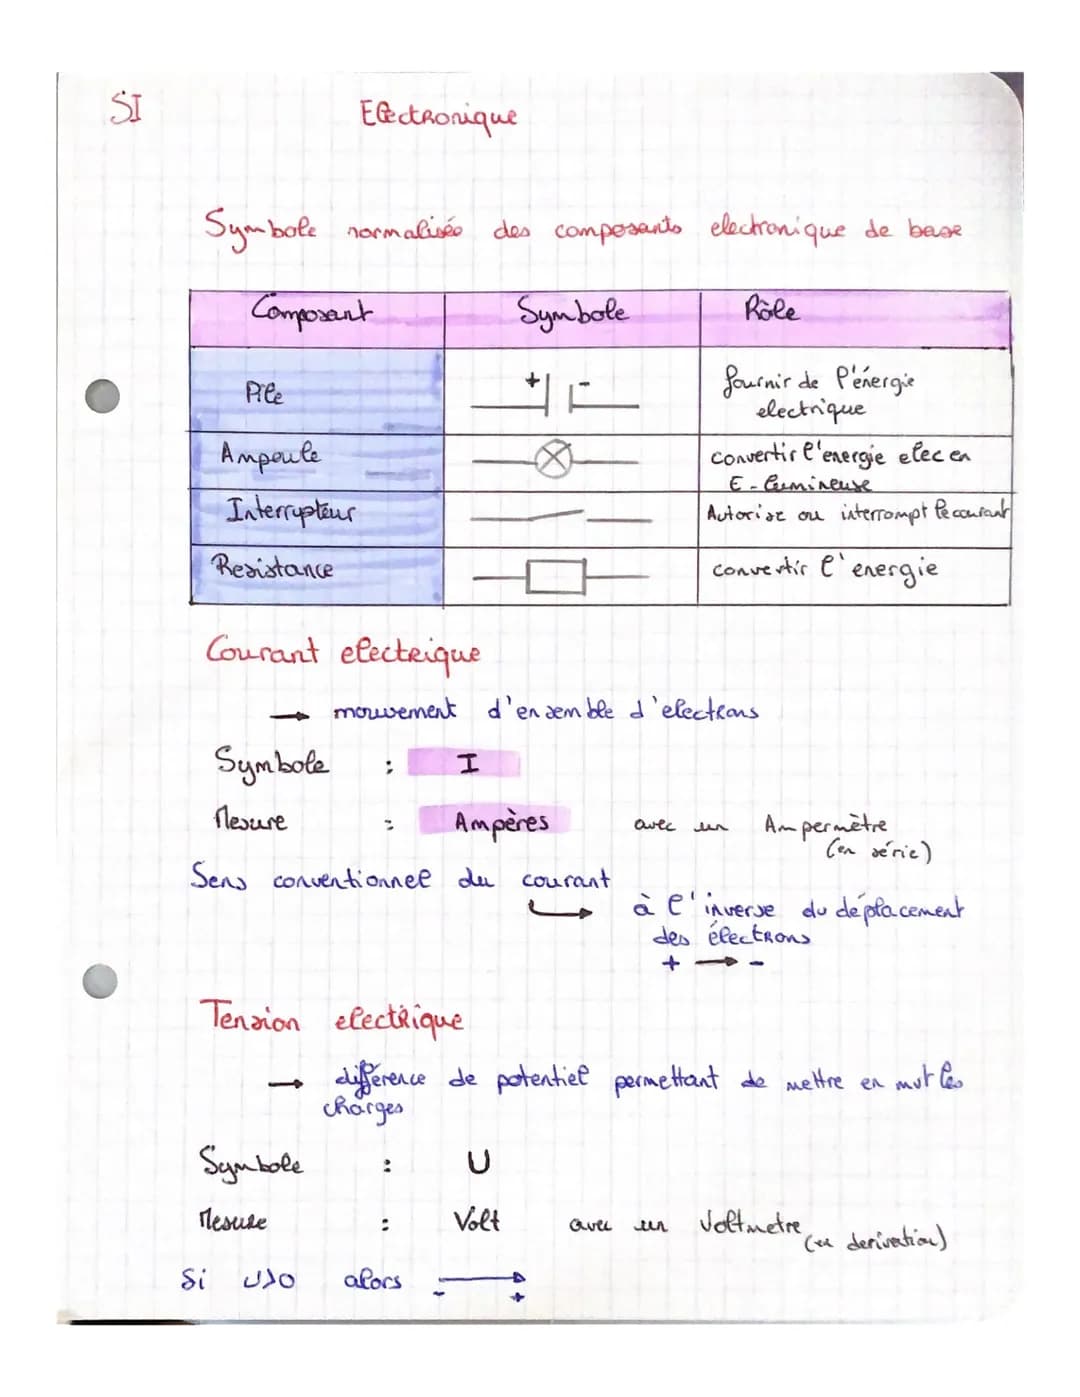 SI
Electronique
Symbole normalisés des composants electronique de base
Composant Symbole Rôle
Pile + - fournir de l'énergie
electrique
Ampoule convertir l'energie elec en
E-lumineuse
Interrupteur Autorise ou interrompt le courant
Resistance convertir l'energie
Courant electrique
→ mouvement d'ensemble d'electrons
Symbole : I
Mesure : Ampères avec un Ampermètre
(en série)
Sens conventionnel du courant
à l'inverse du déplacement
des électrons
+ → -
Tension electrique
→ différence de potentiel permettant de mettre en mvt les
charges
Symbole : U
Mesure : Volt avec un Voltmetre
(en derivation)
Si U>0 alors →
- +